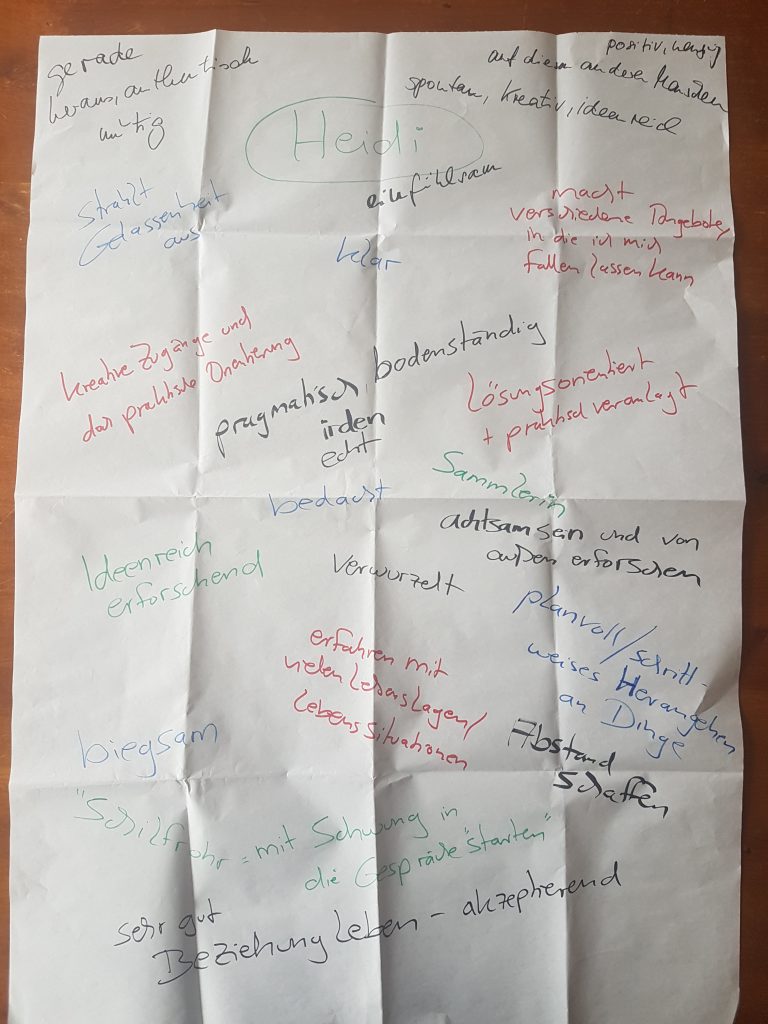 gerade
heraus, authentisch
mutig
positiv, neugig
auf diesen anderen Menschen
spontan, kreativ, ideenreich
Heidi
einfühlsam
strahlt
Gelassenheit
aus
klar
macht
verschiedene Angebote,
in die ich mich
fallen lassen kann
kreative Zugänge und
das praktische Orientierung
pragmatisch, bodenständig
irden
echt
lösungsorientiert
+ praktisch veranlagt
Sammlerin
bedacht
achtsam sein und von
außen erforschen
Ideenreich
erforschend
verwurzelt
planvoll/schritt-
weises Herangehen
an Dinge
erfahren mit
vielen Lebenslagen/
Lebenssituationen
biegsam
Abstand
schaffen
"Schilfrohr = mit Schwung in
die Gespräche "starten"
sehr gut
Beziehung leben - akzeptierend